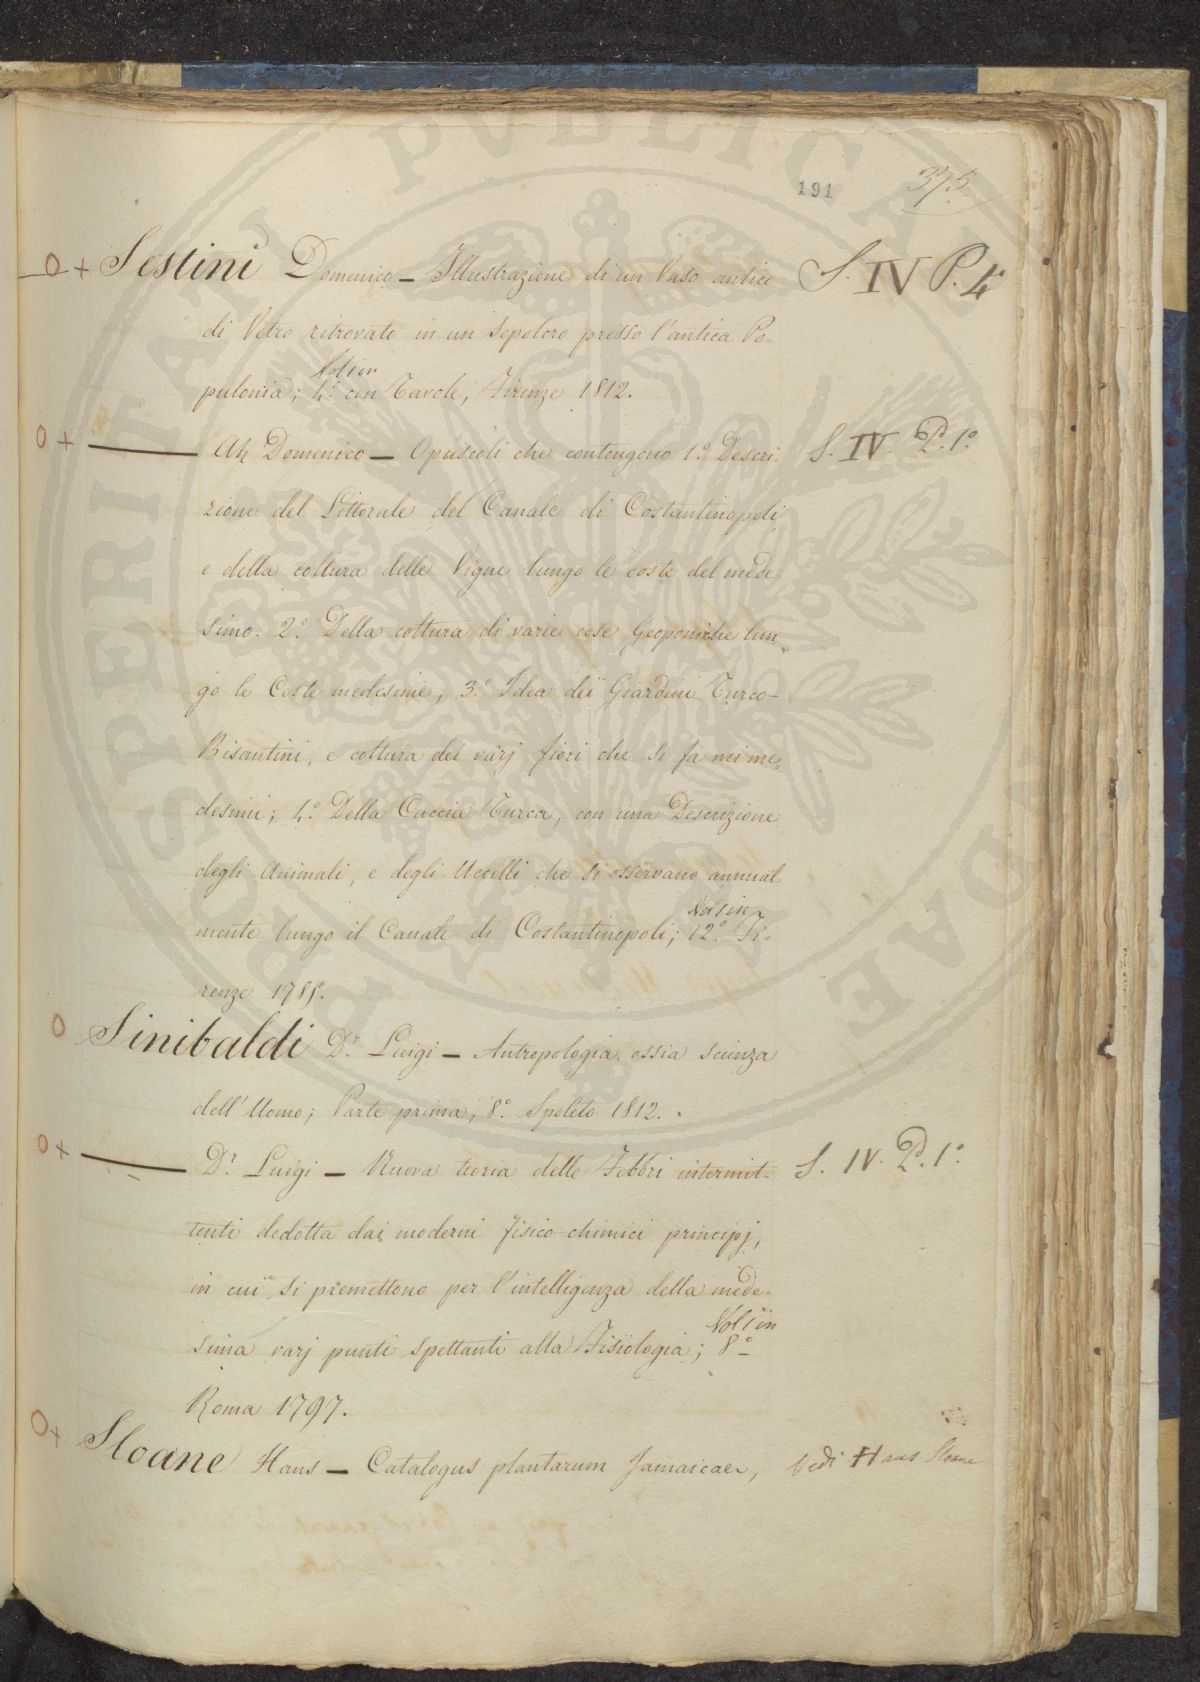 191
375.
O + Sestini Domenico — Illustrazione di un Vaso antico S. IV P. 4
di Vetro ritrovato in un Sepolcro presso l'antica Po-
pulonia; Vol i in 4.º con Tavole, Firenze 1812.
O + —— Ab. Domenico — Opuscoli che contengono 1.º Descri- S. IV. P. 1º
zione del Littorale del Canale di Costantinopoli,
e della coltura delle Vigne lungo le coste del mede-
simo. 2.º Della coltura di varie cose Geoponiche lun-
go le Coste medesime, 3.º Idea dei Giardini Turco-
Bisantini, e coltura dei varj fiori che si fa nei me-
desimi; 4.º Della Caccia Turca, con una Descrizione
degli Animali, e degli Uccelli che si osservano annual-
mente lungo il Canale di Costantinopoli; Vol i in 12.º Fi-
renze 1785.
O Sinibaldi D.r Luigi — Antropologia ossia scienza
dell'Uomo; Parte prima, 8.º Spoleto 1812.
O + —— D.r Luigi — Nuova teoria delle Febbri intermit- S. IV. P. 1º
tenti dedotta dai moderni fisico-chimici principj,
in cui si premettono per l'intelligenza della mede-
sima varj punti spettanti alla Fisiologia; Vol i in 8º
Roma 1797.
O + Sloane Hans — Catalogus plantarum Jamaicae, Vedi Hans Sloane
PROSPERITATI PUBLICAE